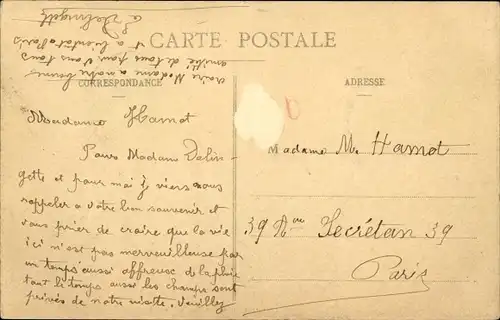 CARTE POSTALE
CORRESPONDANCE
ADRESSE
Madame Hamot
Pour Madame Delin-
gette et pour moi je viens vous
rappeler a votre bon souvenir et
vous prier de croire que la vie
ici n'est pas merveilleuse par
un temps aussi affreux de la pluie
tout le temps aussi les champs sont
privés de notre visite. Veuillez
croire Madame a notre bonne
amitié de tous pour vous tous
et a bientot a Paris
L Delingette
Madame M. Hamot
39 Secrétan 39
Paris